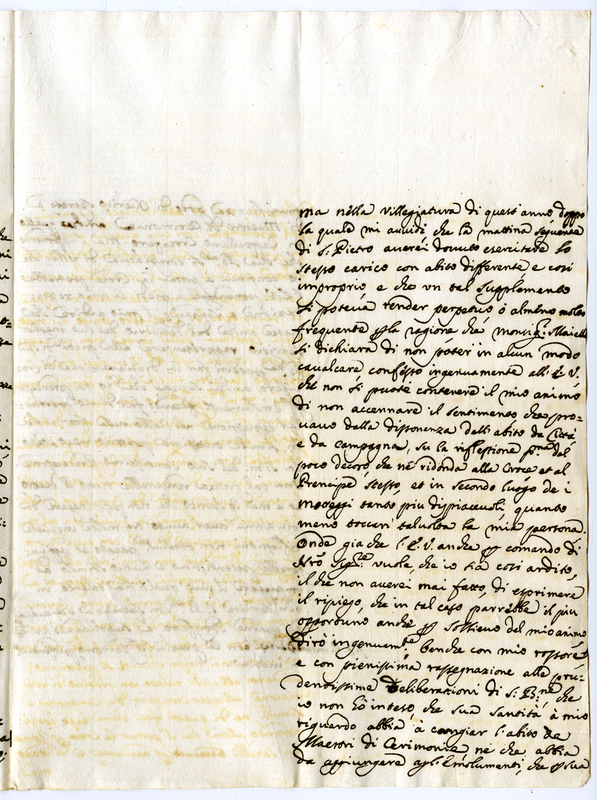 ma nella Villegiatura di quest'anno doppo
la quale mi avvidi che la mattina seguente
di S. Pietro averei dovuto esercitare lo
stesso carico con abito differente e così
improprio, e che un tal supplemento
si poteva render perpetuo ò almeno molto
frequente p la ragione che monsig.r Maiella
si dichiara di non poter in alcun modo
cavalcare confesso ingenuamente all' E. V.
che non si puotè contenere il mio animo
di non accennare il sentimento che pro-
vavo dalla dissonenza dell'abito da Città
e da campagna, su la riflessione pma del
poco decoro, che nè ridonda alla Croce et al
Prencipe stesso, et in secondo luogo de i
moteggi tanto piu dispiacevoli, quanto
meno toccan taluolta la mia persona.
Onde già che l'E. V. anche p comando di
Nrô Sig.re vuole, che io sia così ardito,
il che non averei mai fatto, di esprimere
il ripiego, che in tal caso parrebbe il piu
opportuno anche p sollievo del mio animo
dirò ingenuam.te benche con mio rossore
e con pienissima rassegnazione alle pru-
dentissime Deliberationi di S. B.ne che
io non hò inteso, che sua Santità à mio
riguardo abbia à cangiar l'abito de
Maestri di Cerimonie, nè che abbia
da aggiungere agl'Emolumenti, che p sua